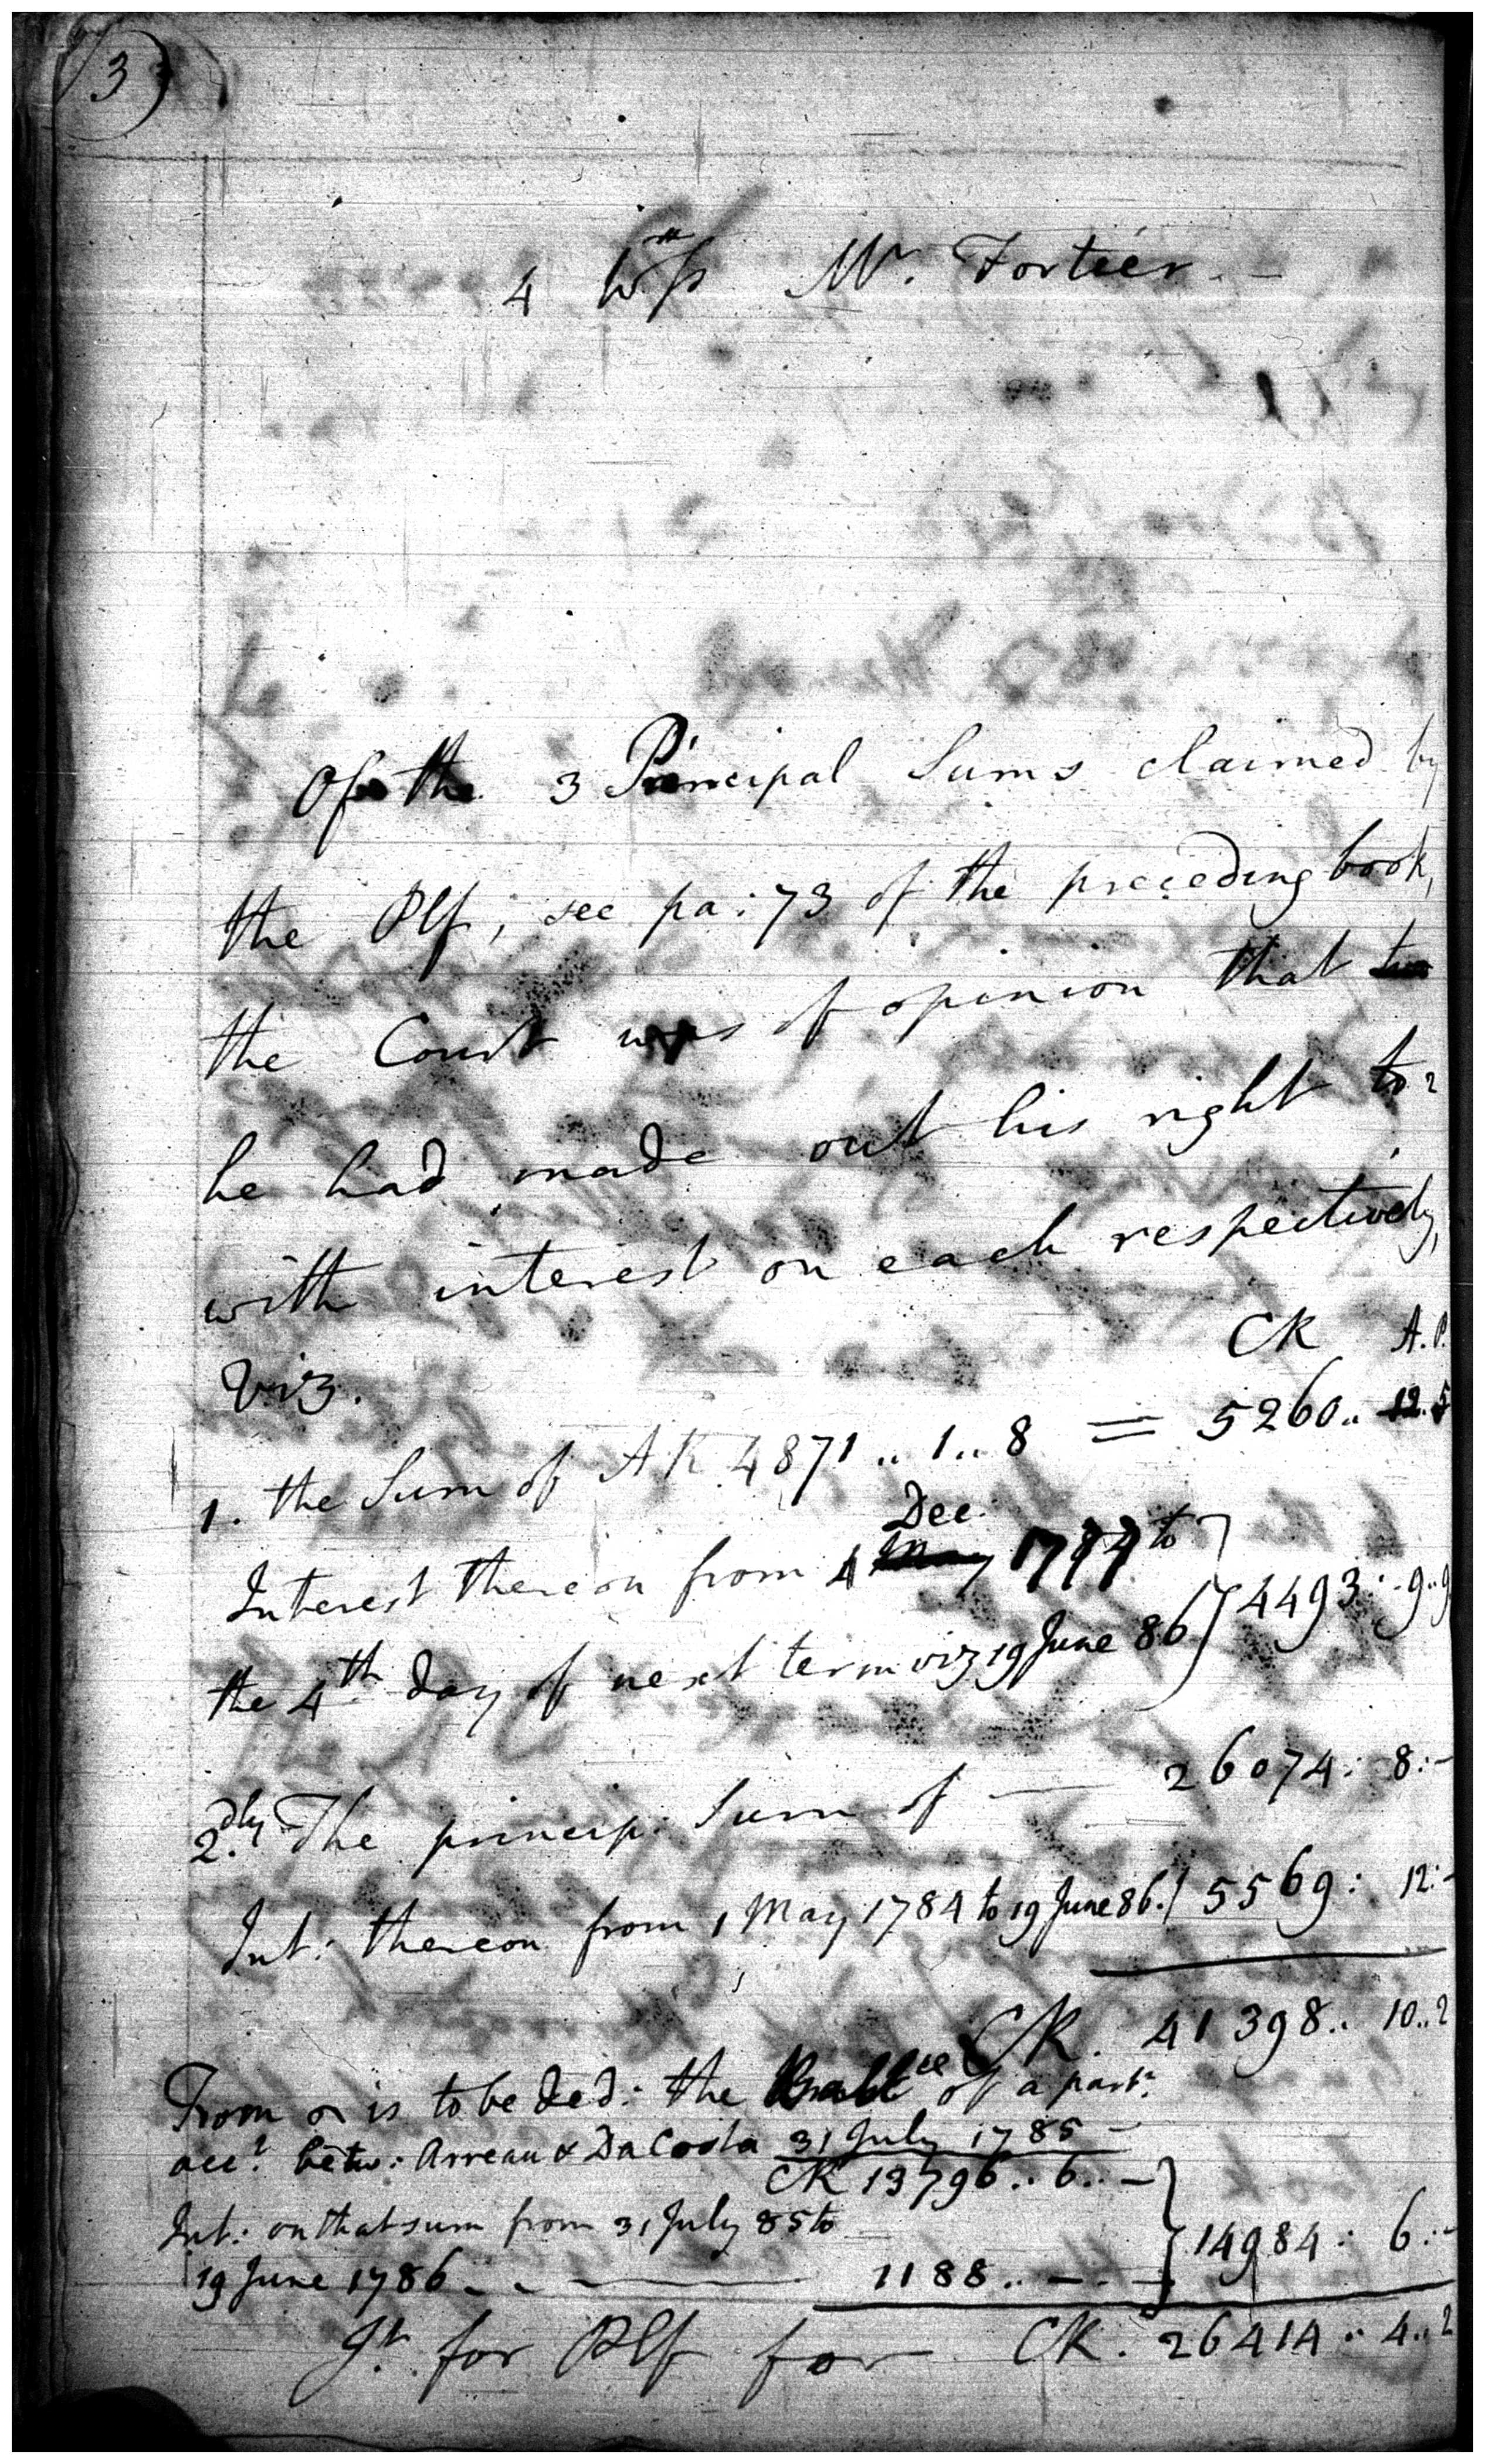 3
4 wss Mr. Fortier. —
Of the 3 Principal Sums claimed by
the Plf, see pa: 73 of the preceding book,
the Court was of opinion that
he had made out his right to 2
with interest on each respectively,
Viz. CR A. P.
1. the Sum of AR 4871 .. 1 .. 8 = 5260 .. 12. 5
Dec.
Interest thereon from 4 to } 4493: 9..9
the 4th day of next term viz 19 June 86
2dly. The princip. Sum of — 26074: 8:-
Int: thereon from 1 May 1784 to 19 June 86. } 5569: 12:-
CR. 41398.. 10..2
From is to be ded: the of a part:
acct. betw: Arreau & DaCosta 31 July 1785 —
CR 13796.. 6.. —
Int: on that sum from 31 July 85 to } 14984: 6:-
19 June 1786 — 1188.. — . —
Jt. for Plf for CR. 26414.. 4..2